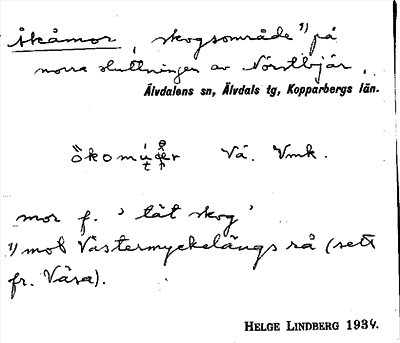 Åkåmor, skogsområde 1) på
norra sluttningen av Nörstbjär,
Älvdalens sn, Älvdals tg, Kopparbergs län.
Vå. Vmk.
mor f. 'tät skog'
1) mot Västermyckelängs rå (sett
fr. Våsa).
HELGE LINDBERG 1934.